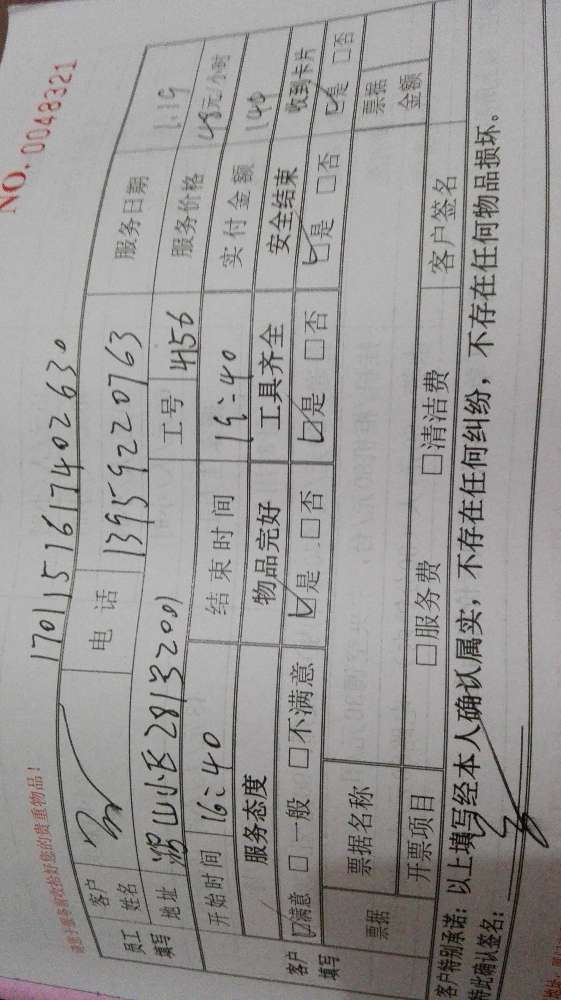 NO. 0048321
请您于服务前收拾好您的贵重物品!
170115761740 2630
员工填写
客户姓名
电话 13959220763
服务日期 1.19
地址 小区 28132001
工号 4156
服务价格 48元/小时
开始时间 16:40
结束时间 19:40
实付金额 140
客户填写
服务态度 物品完好 工具齐全 安全结束 收到卡片
☑满意 □一般 □不满意 ☑是 □否 ☑是 □否 ☑是 □否 ☑是 □否
票据
票据名称
票据金额
开票项目 □服务费 □清洁费 客户签名
客户特别承诺:以上填写经本人确认属实,不存在任何纠纷,不存在任何物品损坏。
特此确认签名: